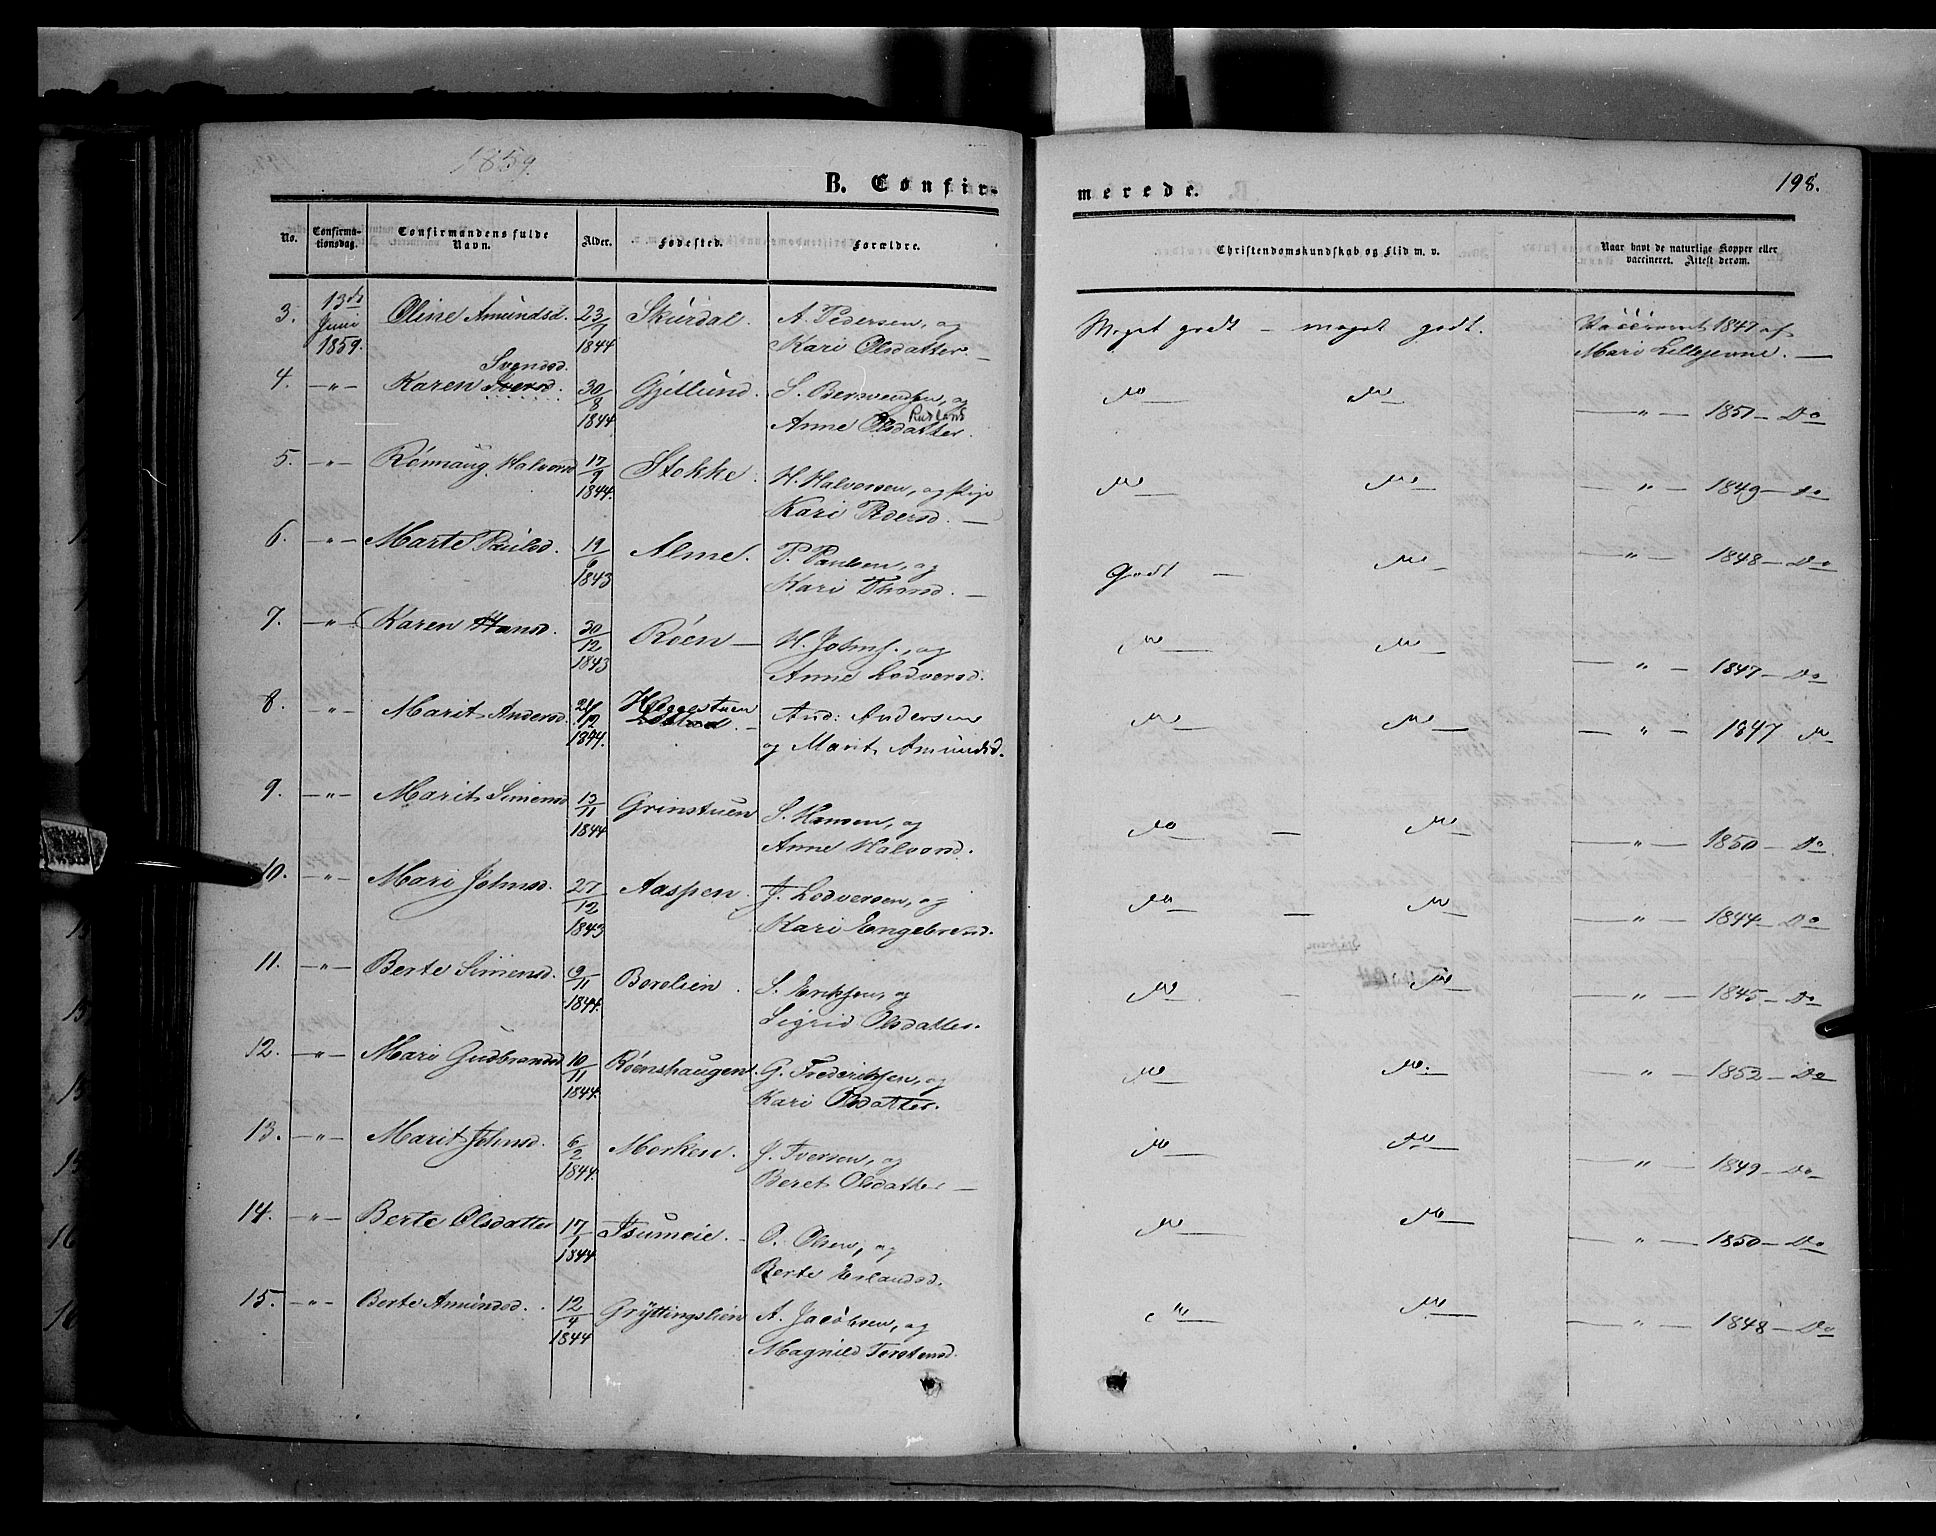 1859.
B. Confir-
merede.
198.
No.
Confirma-
tionsdag.
Confirmandens fulde
Navn.
Alder.
Fødested.
Forældre.
Christendomskundskab og Flid m. v.
Naar havt de naturlige Kopper eller
vaccineret. Attest derom.
3. 13de Juni 1859. Oline Amundsd. 23/7 1844 Skurdal. A. Pedersen, og
Kari Olsdatter. —
Meget godt — meget godt. Vaccineret 1847 af
Mari Lillejevne. —
Svendsd.
4. —〃— Karen 30/8 1844 Gjillund. S. og
Rusland
Anne Olsdatter.
Do Do —〃— 1851 — Do
5. —〃— Rønnaug Halvorsd 17/9 1844. Stokke. H. Halvorsen, og
Kari Pedersd. —
Do Do —〃— 1849 — Do
6. —〃— Marte Paulsd. 19 1843 Alme. P. Paulsen, og
Kari —
Godt — Do —〃— 1848 — Do
7. —〃— Karen Hansd. 30/12 1843 Røen — H. Johnf., og
Anne Lodversd.
Do Do —〃— 1847 — Do
8. —〃— Marit Andersd. /12 1844. Heggestuen — And: Andersen
og Marit Amundsd.
Do Do —〃— 1847 Do
9. —〃— Marit Simensd 13/11 1844 Grinstuen S. Hansen, og
Anne Halvorsd.
Do — Do —〃— 1850 — Do
10. —〃— Mari Johnsd. 27/12 1843 Aaspen. J. Lodversen, og
Kari Engebrend.
Do — Do —〃— 1844 — Do
11. —〃— Berte Simensd. 9/11 1844. Borelien. S. Eriksen, og
Sigrid Olsdatter.
Do — Do —〃— 1845 — Do
12. —〃— Mari Gudbrandsd 10/11 1844. Røenshaugen. G. Frederiksen, og
Kari Olsdatter.
Do Do. —〃— 1852 — Do
13. —〃— Marit Johnsd. 6/2 1844. Morken. J. Iversen, og
Beret Olsdatter —
Do Do —〃— 1849 — Do
14. —〃— Berte Olsdatter 17/1 1844 Isumeie. — O. Olsen, og
Berte Erlandsd.
Do Do —〃— 1850 — Do
15. —〃— Berte Amundsd. 12/4 1844 Gryttingslien A. Jacobsen, og
Magnild Torstensd.
Do Do —〃— 1848 — Do